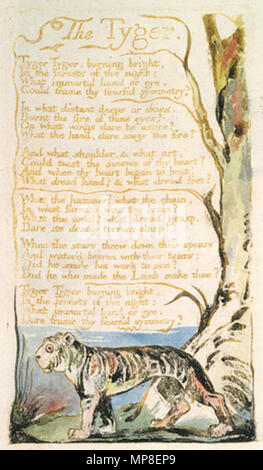 The Tyger.
Tyger Tyger. burning bright,
In the forests of the night:
What immortal hand or eye.
Could frame thy fearful symmetry?
In what distant deeps or skies.
Burnt the fire of thine eyes?
On what wings dare he aspire?
What the hand, dare sieze the fire?
And what shoulder, & what art,
Could twist the sinews of thy heart?
And when thy heart began to beat,
What dread hand? & what dread feet?
What the hammer? what the chain,
In what furnace was thy brain?
What the anvil? what dread grasp,
Dare its deadly terrors clasp?
When the stars threw down their spears
And water'd heaven with their tears:
Did he smile his work to see?
Did he who made the Lamb make thee?
Tyger Tyger burning bright,
In the forests of the night:
What immortal hand or eye,
Dare frame thy fearful symmetry?
alamy
alamy
Image ID: MP8EP9
www.alamy.com